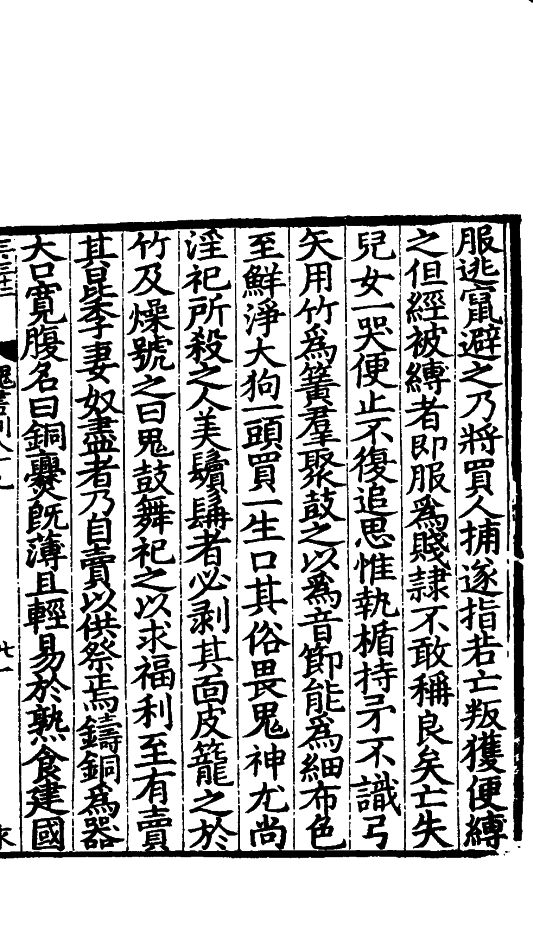 服逃竄避之乃將買人捕逐指若亡叛獲便縳
之但經被縳者即服為賤隷不敢稱良矣亡失
兒女一哭便止不復追思惟執楯持矛不識弓
矢用竹為簧羣聚鼓之以為音節能為細布色
至鮮淨大狗一頭買一生口其俗畏鬼神尤尚
淫祀所殺之人美鬚髯者必剥其面皮籠之於
竹及燥號之曰鬼鼓舞祀之以求福利至有賣
其昆季妻奴盡者乃自賣以供祭焉鑄銅為器
大口寛腹名曰銅爨旣薄且輕易於熟食建國